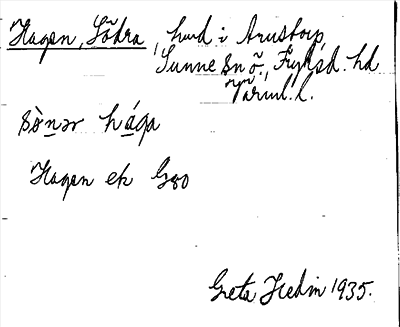 Hagen, Södra, hmd i Arnstorp,
Sunne sn ö., Fryksd. hd
Värml. l.
sò̱nər há̱ga
Hagen ek G80
Greta Hedin 1935.